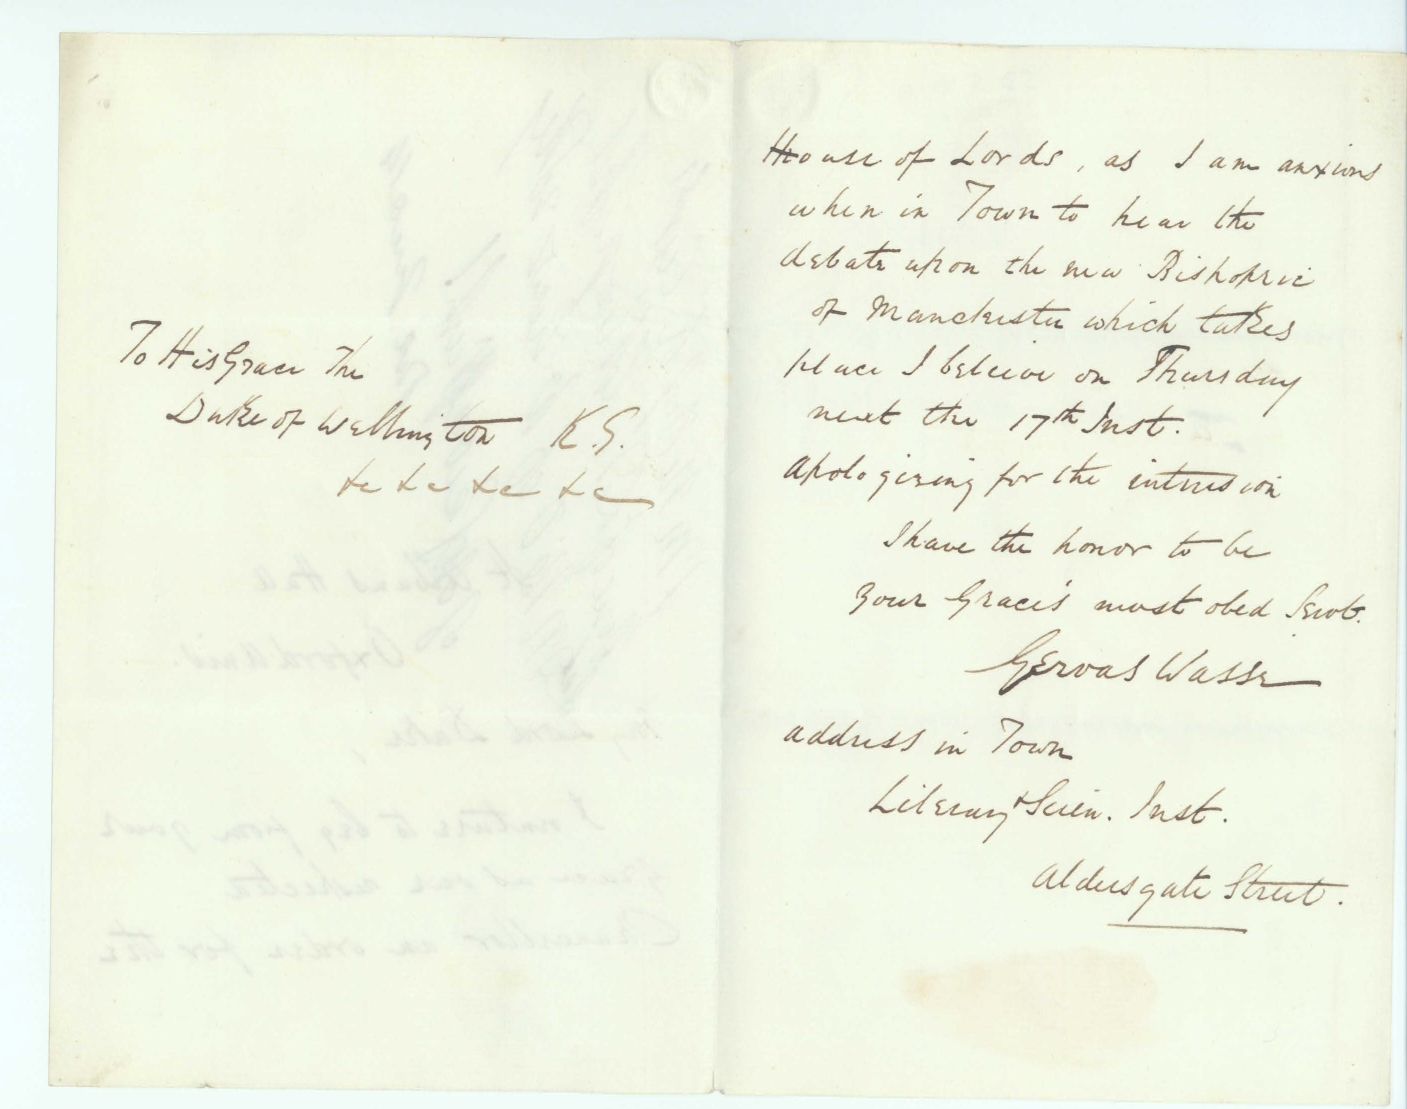 To His Grace The
Duke of Wellington K.G.
&c &c &c &c
House of Lords, as I am anxious
when in Town to hear the
debate upon the new Bishopric
of Manchester which takes
place I beleive on Thursday
next the 17th Inst.
Apologising for the intrusion
I have the honor to be
Your Grace's most obed Servt.
Gervas Wasse
address in Town
Literary & Scien. Inst.
Aldersgate Street.